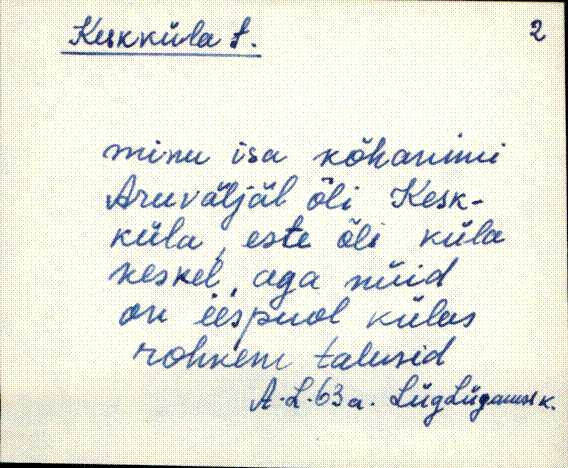 Keskküla t.
2
minu isa kõhanimi
Aruväljäl õli Kesk-
küla, este õli küla
keskel, aga nüid
on ëespuol külas
rohkem talusid
A.L. 63 a. Lüg Lüganuse k.